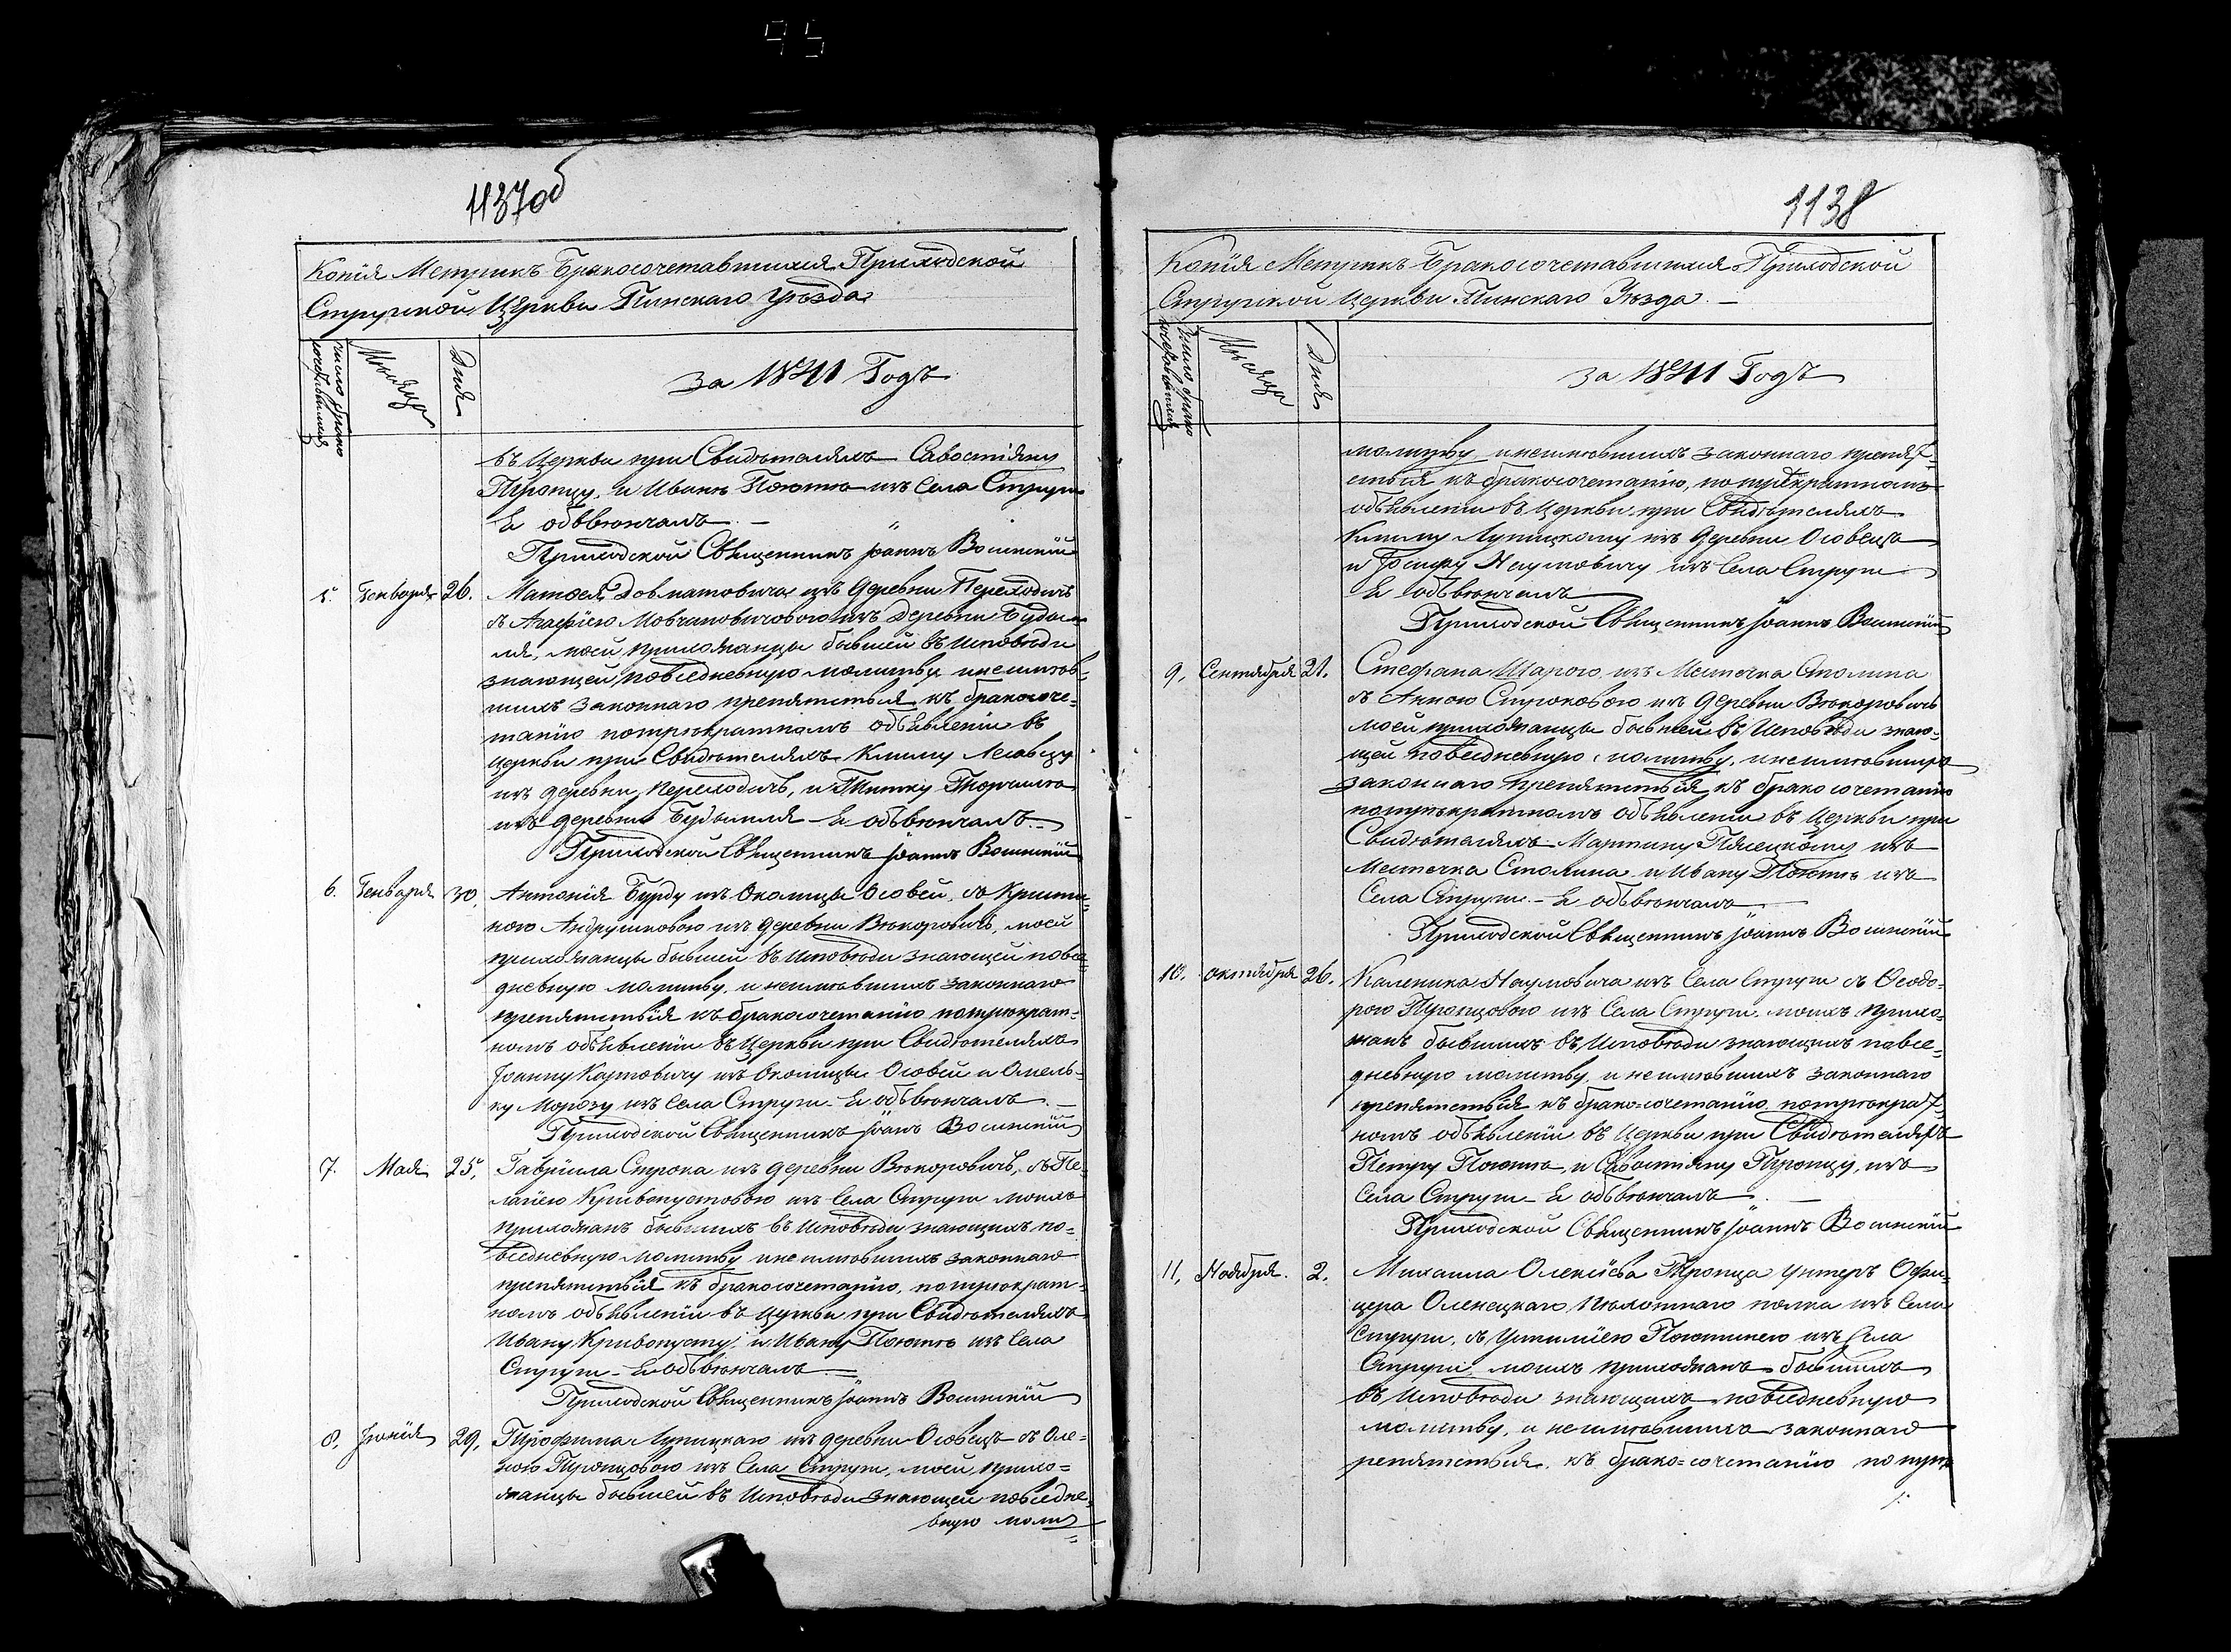 95
1137об
Копія Метрикъ Бракосочетавшихся Приходской
Стругской Церкви Пинскаго Уѣзда
число брако
сочетавшихся
Мѣсяца
Дня
за 1841 Годъ
въ Церкви при Свидѣтеляхъ Савостіяну
Пиропцу, и Иванѣ Покотило изъ Села Струги
Ея обвѣнчалъ. —
Приходской Священникъ Іоаннъ
5. Генваря 26. Матѳея Довнатовича изъ деревни Переходичъ
съ Агафіею Мовчановичовою изъ деревни Будим
ля, моей прихожанцы бывшей въ Исповѣди
знающей повседневную молитву инеимѣв-
шихъ законнаго препятствія къ бракосоче-
танію потрехкратномъ объявленіи въ
Церкви при Свидѣтеляхъ Климу Лесовцу
изъ деревни Переходичъ, и Титку
изъ деревни Будимля Ея обвѣнчалъ. —
Приходской Священникъ Іоаннъ
6. Генваря 30. Антонія Бурду изъ Околицы Особей, съ Кристи-
ною Андрушковою изъ деревни Вѣкоровичъ, моей
прихожанцы бывшей въ Исповѣди знающей повсе-
дневную молитву, и неимѣвшихъ законнаго
препятствія къ бракосочетанію потрехкрат-
номъ объявленіи въ Церкви при Свидѣтеляхъ
Іоанну Карповичу изъ Околицы Особей и Омель-
ку Морозу изъ Села Струги Ея обвѣнчалъ. —
Приходской Священникъ Іоанъ
7. Мая 25. Гавріила Строка изъ деревни Вѣкоровичъ, съ Пе-
лагіею Кривопустовою изъ Села Струги моихъ
прихожанъ бывшихъ въ Исповѣди знающихъ по-
вседневную молитву инеимѣвшихъ законнаго
препятствія къ бракосочетанію, потрехкрат-
номъ объявленіи въ Церкви при Свидѣтеляхъ
Ивану Кривопусту, и Ивану Покотило изъ Села
Струги Ея обвѣнчалъ. —
Приходской Священникъ Іоаннъ
8. Іюнія 29. Трофима Лупицкаго изъ деревни Особецъ съ Оле-
ною Пиропцовою изъ Села Струги, моей прихо-
жанцы бывшей въ Исповѣди знающей повседне-
вную моли
1138
Копія Метрикъ Бракосочетавшихся Приходской
Стругской Церкви Пинскаго Уѣзда. —
Число брако
сочетавшихся
Мѣсяца
Дня
за 1841 Годъ
молитву инеимѣвшихъ законнаго препят-
ствія къ бракосочетанію, потрехкратномъ
объявленіи въ Церкви при Свидѣтеляхъ
Климу Лупицкому изъ деревни Особецъ
и Іосифу Наумовичу изъ Села Струги
Ея обвѣнчалъ
Приходской Священникъ Іоаннъ
9. Сентября 21. Стефана Шарого изъ Мѣстечка Столина
съ Анною Строковою изъ деревни Вѣкоровичъ
моей прихожанцы бывшей въ Исповѣди знаю-
щей повседневную молитву, инеимѣвшихъ
законнаго препятствія къ бракосочетанію
потрехкратномъ объявленіи въ Церкви при
Свидѣтеляхъ Мартину изъ
Мѣстечка Столина и Ивану Покотило изъ
Села Струги. — Ея обвѣнчалъ
Приходской Священникъ Іоаннъ
10. октября 26. Каленика Наумовича изъ Села Струги съ Ѳеодо-
рою Пиропцовою изъ Села Струги. моихъ прихо-
жанъ бывшихъ въ Исповѣди знающихъ повсе-
дневную молитву, и неимѣвшихъ законнаго
препятствія къ брако-сочетанію потрехкрат-
номъ объявленіи въ Церкви при Свидѣтеляхъ
Петру Покотило, и Савостіяну Пиропцу, изъ
Села Струги — Ея обвѣнчалъ. —
Приходской Священникъ Іоаннъ
11. Ноября. 2. Михаила Олексіева Пиропца Унтеръ Офи-
цера Олонецкаго пѣхотнаго полка изъ Села
Струги, съ Устиміею изъ Села
Струги моихъ прихожанъ бывшихъ
въ Исповѣди знающихъ повседневную
молитву, и неимѣвшихъ законнаго
репятствія къ брако=сочетанію